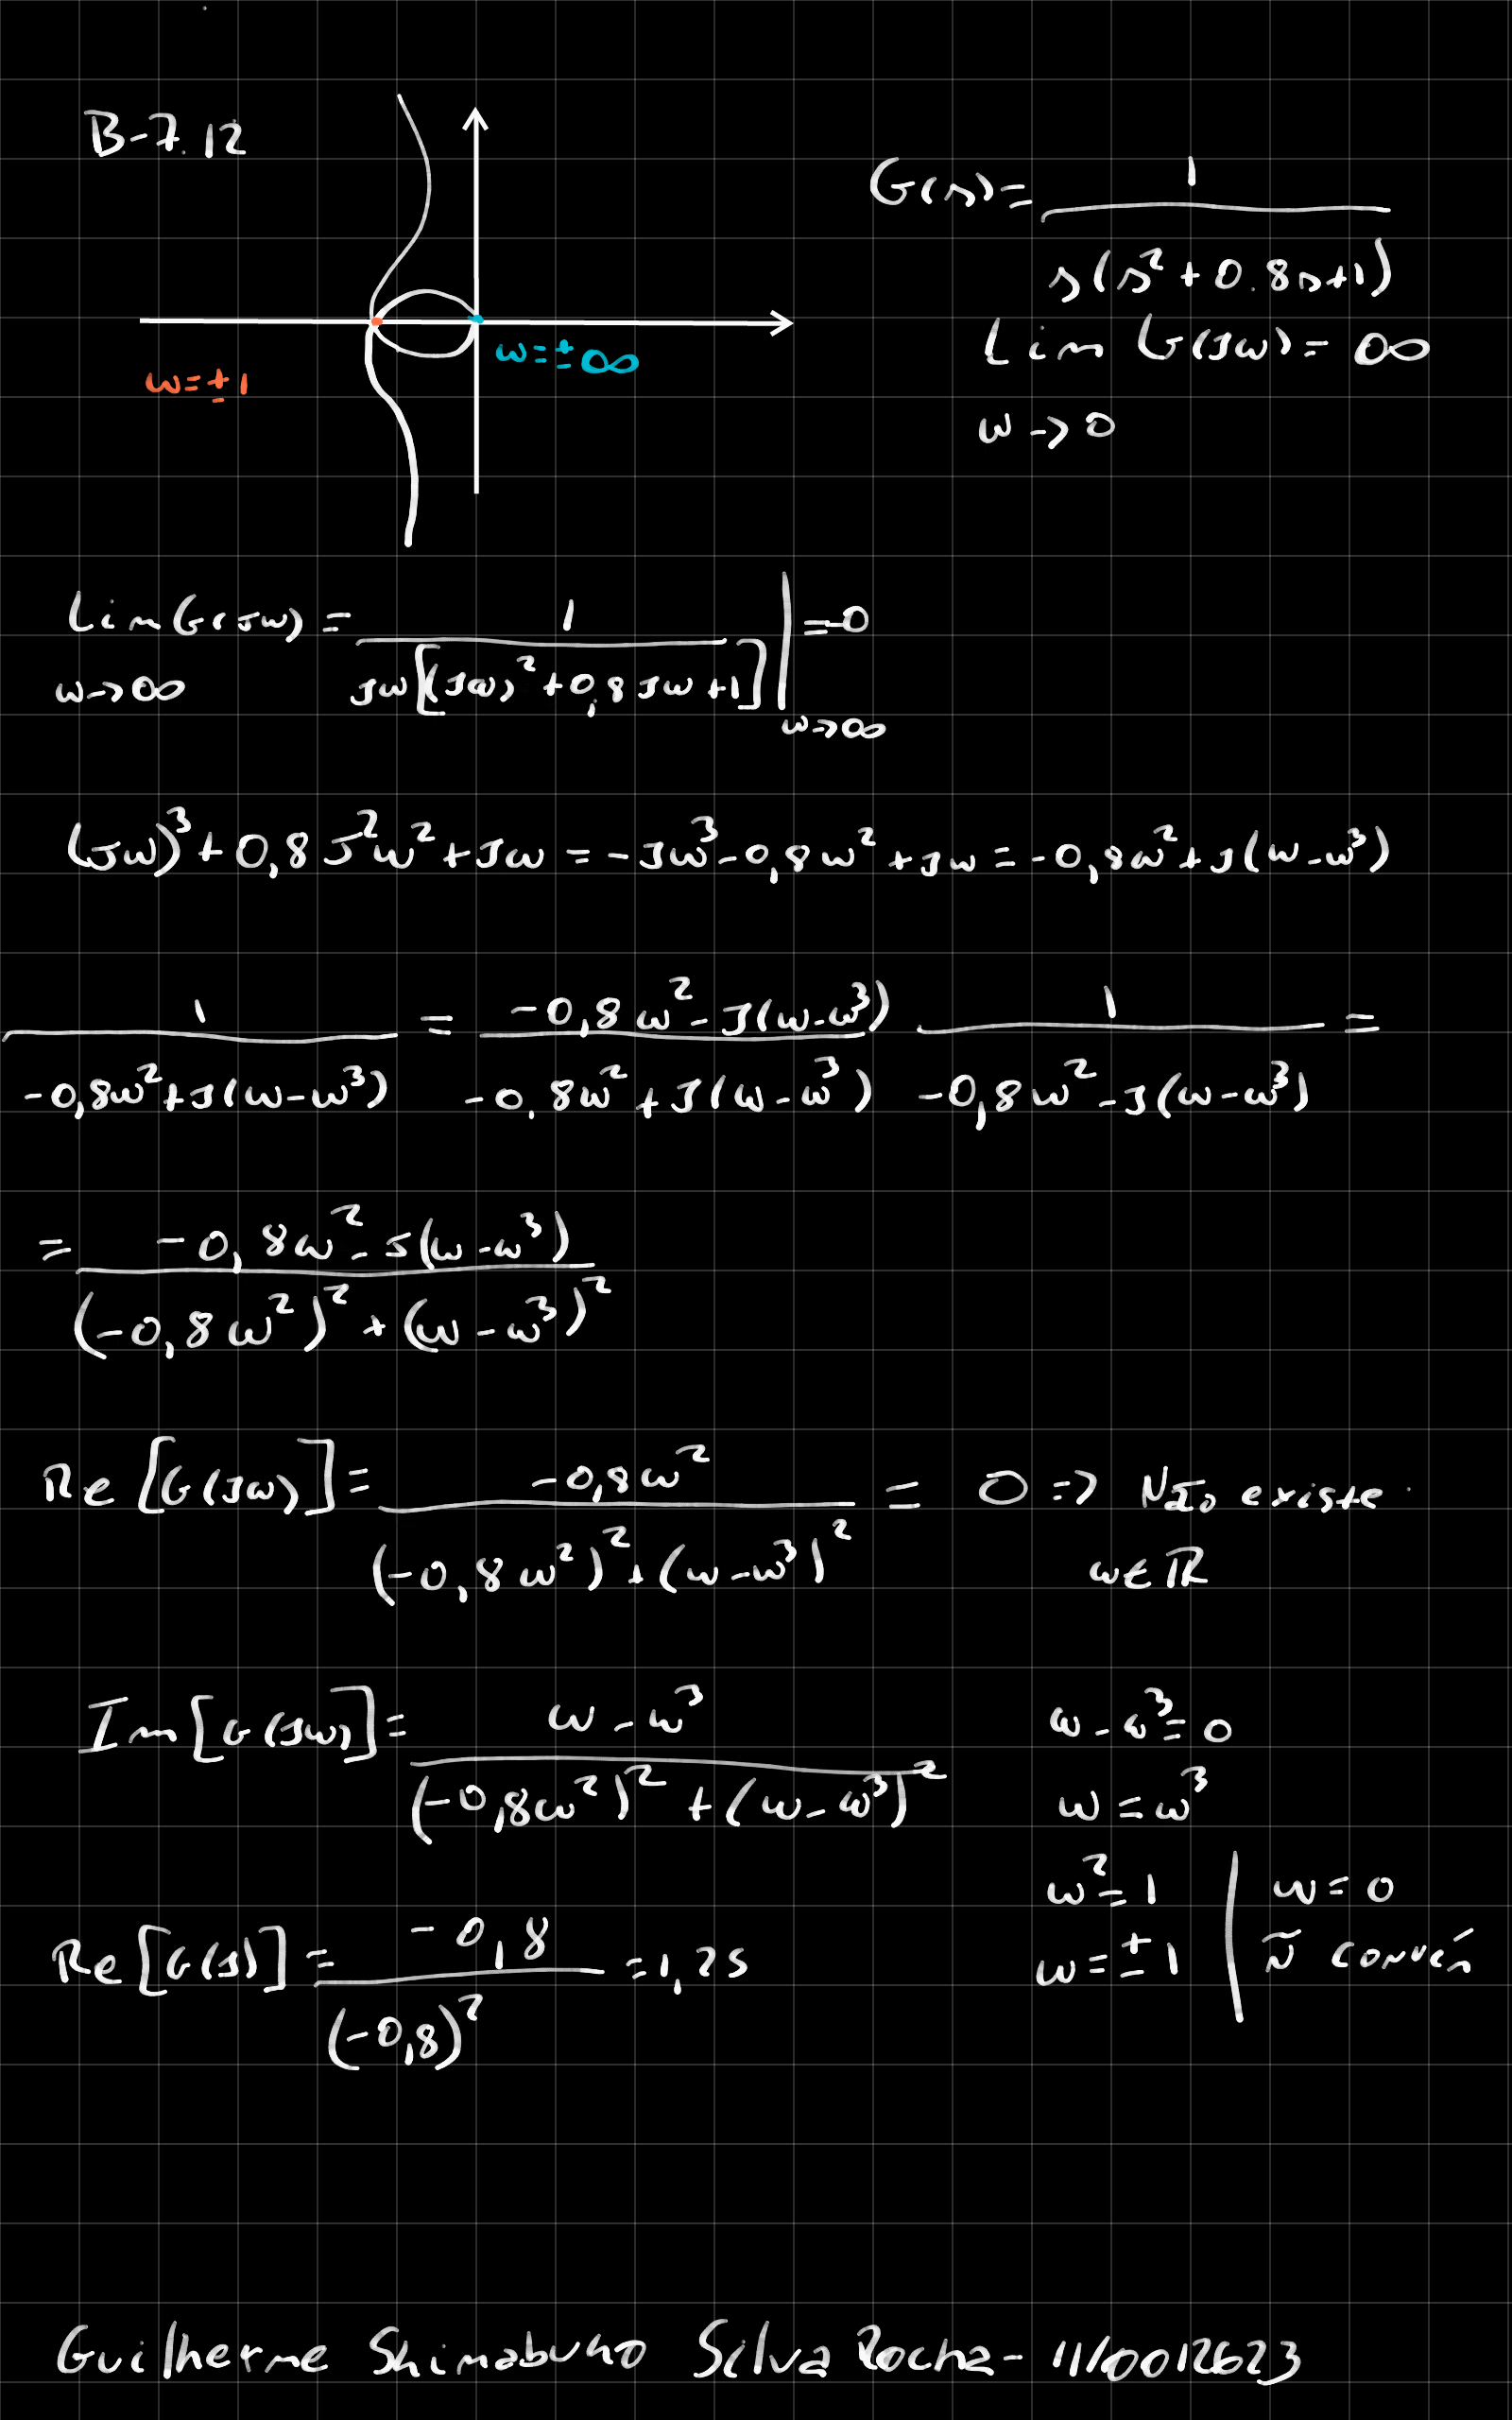 B-7.12
G(s)= 1
s(s²+0.8s+1)
Lim G(Jω)= ∞
ω→0
ω=±∞
ω=±1
Lim G(Jω) = 1 / Jω[(Jω)²+0,8Jω+1] | =-0
ω→∞ ω→∞
(Jω)³+0,8J²ω²+Jω = -Jω³-0,8ω²+Jω = -0,8ω²+J(ω-ω³)
1 / -0,8ω²+J(ω-ω³) = -0,8ω²-J(ω-ω³) / -0,8ω²+J(ω-ω³) 1 / -0,8ω²-J(ω-ω³) =
= -0,8ω²-J(ω-ω³) / (-0,8ω²)²+(ω-ω³)²
Re[G(Jω)]= -0,8ω² / (-0,8ω²)²+(ω-ω³)² = 0 => Não existe
ω∈ℝ
Im[G(Jω)]= ω-ω³ / (-0,8ω²)²+(ω-ω³)²
ω-ω³=0
ω=ω³
ω²=1 | ω=0
ω=±1 | Ñ convém
Re[G(J)]= -0,8 / (-0,8)² =1,25
Guilherme Shimabuko Silva Rocha- 11/0012623